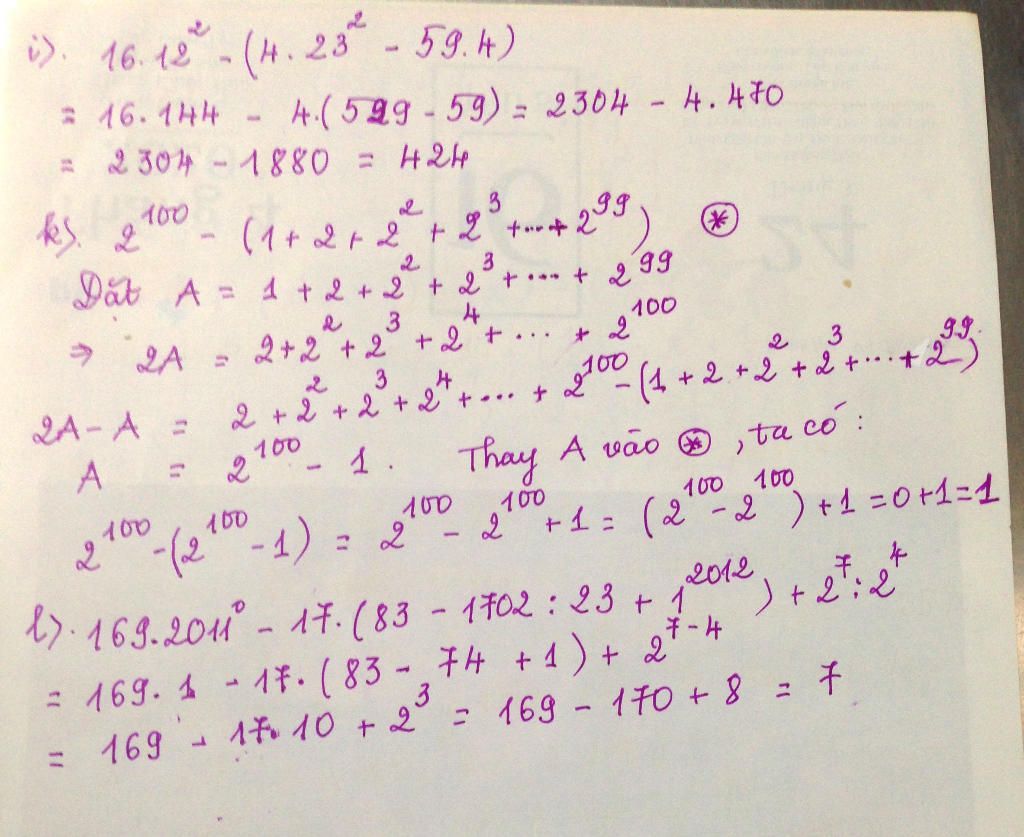 i). 16.12² - (4.23² - 59.4)
= 16.144 - 4.(529 - 59) = 2304 - 4.470
= 2304 - 1880 = 424
k). 2¹⁰⁰ - (1 + 2 + 2² + 2³ + ... + 2⁹⁹) ⊛
Đặt A = 1 + 2 + 2² + 2³ + ... + 2⁹⁹
⇒ 2A = 2 + 2² + 2³ + 2⁴ + ... + 2¹⁰⁰
2A - A = 2 + 2² + 2³ + 2⁴ + ... + 2¹⁰⁰ - (1 + 2 + 2² + 2³ + ... + 2⁹⁹)
A = 2¹⁰⁰ - 1. Thay A vào ⊛, ta có:
2¹⁰⁰ - (2¹⁰⁰ - 1) = 2¹⁰⁰ - 2¹⁰⁰ + 1 = (2¹⁰⁰ - 2¹⁰⁰) + 1 = 0 + 1 = 1
l). 169.2011⁰ - 17.(83 - 1702 : 23 + 1²⁰¹²) + 2⁷ : 2⁴
= 169.1 - 17.(83 - 74 + 1) + 2⁷⁻⁴
= 169 - 17.10 + 2³ = 169 - 170 + 8 = 7